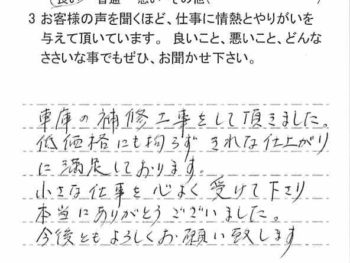 3 お客様の声を聞くほど、仕事に情熱とやりがいを
与えて頂いています。 良いこと、悪いこと、どんな
ささいな事でもぜひ、お聞かせ下さい。
車庫の補修工事をして頂きました。
低価格にも拘らず きれな仕上がり
に満足しております。
小さな仕事を 心よく 受けて下さり
本当にありがとうございました。
今後とも よろしくお願い致します